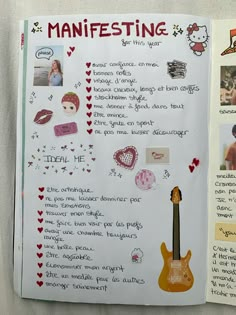 MANIFESTING
for this year
avoir confiance en moi
bonnes notes
visage d'ange
être toujours belle
stockholm style
me donner à fond dans tout
être mince
être sport on
ne pas me laisser décourager
IDEAL ME
être artistique
ne pas me laisser dominer par
mes émotions
trouver mon style
me faire bien voir par les profs
avoir une chambre toujours
rangée
une belle peau
être soignée
économiser mon argent
être un modèle pour les autres
manger sainement